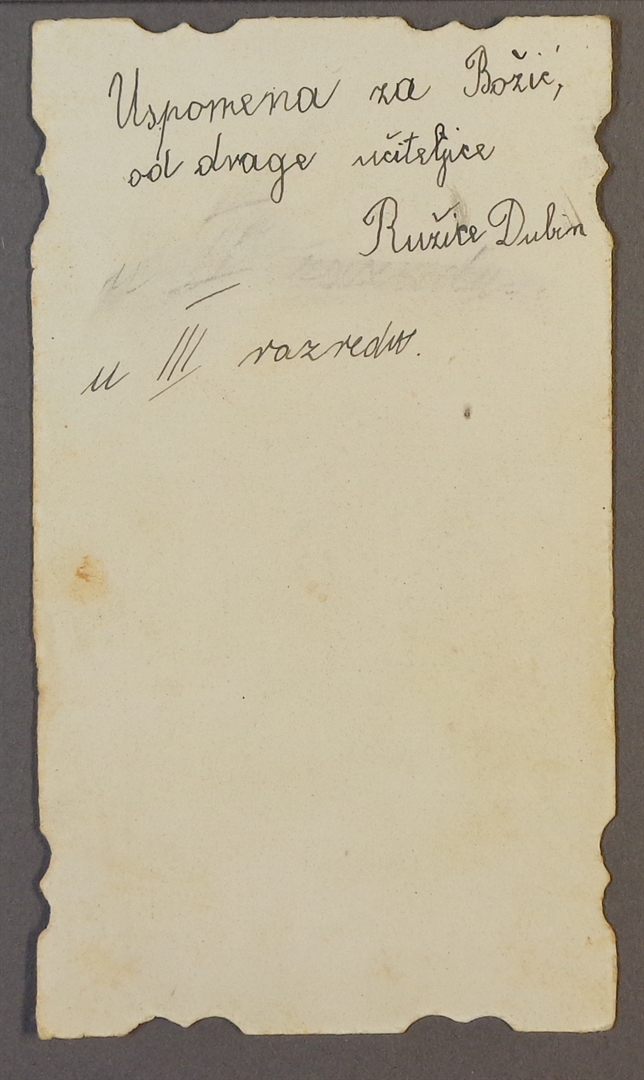 Uspomena za Božić,
od drage učiteljice
Ružice Dubin
u III razredu.